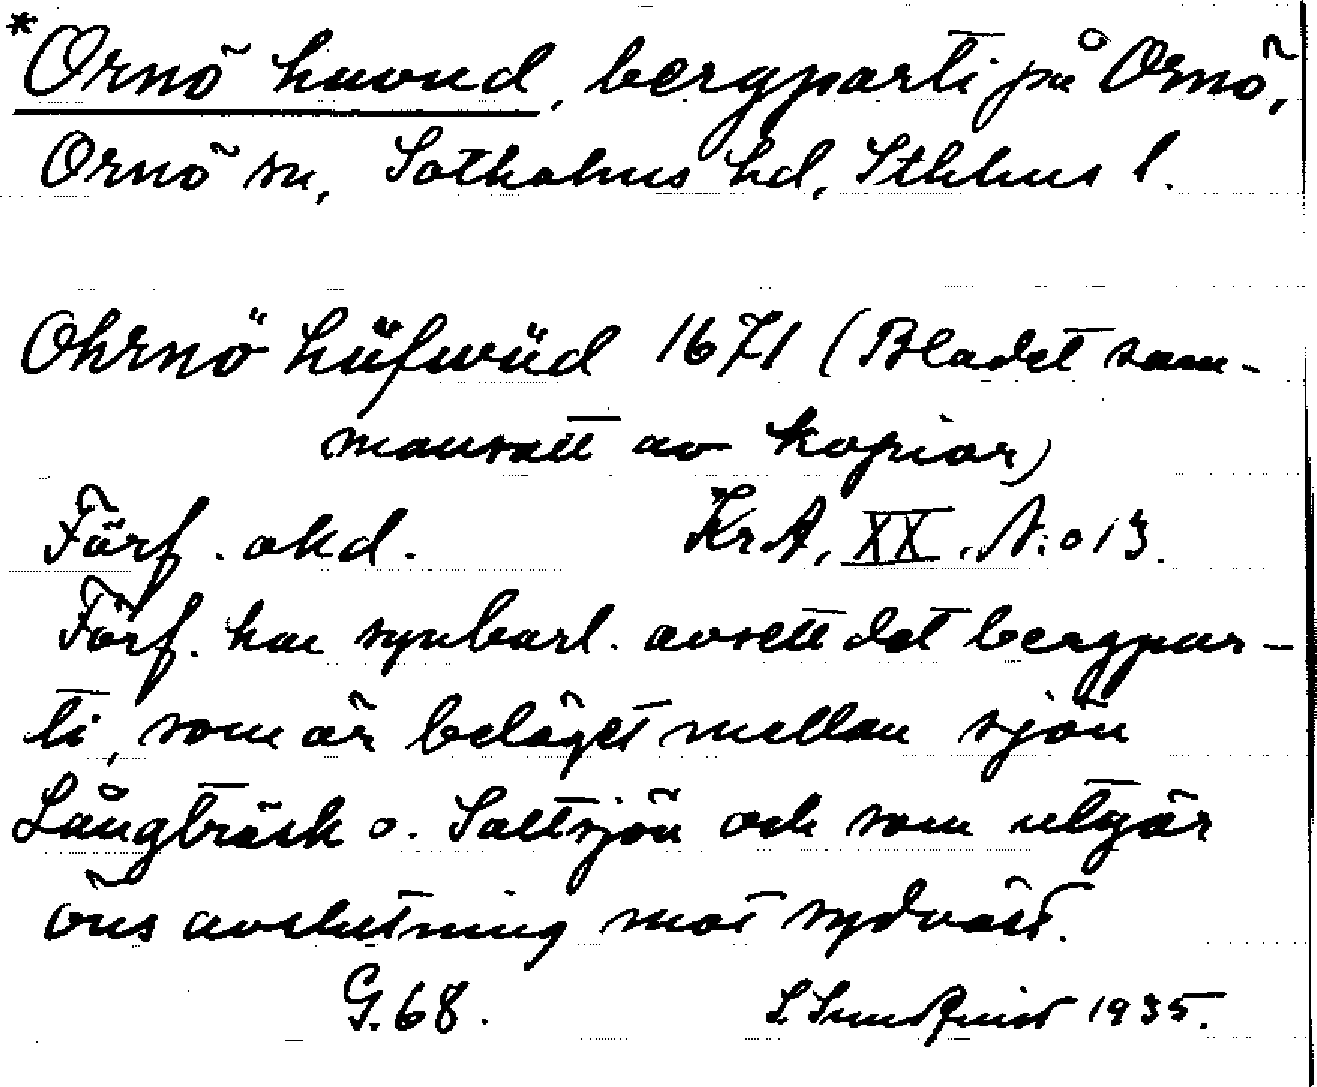 *Ornö huvud, bergparti på Ornö,
Ornö sn, Sotholms hd, Sthlms l.
Ohrnö hüfwüd 1671 (Bladet sam-
mansatt av kopior)
Förf. okd. KrA, XX. N:o 13.
Förf. har synbarl. avsett det bergpar-
ti, som är beläget mellan sjön
Långträsk o. Saltsjön och som utgör
öns avslutning mot sydväst.
G. 68. S. Sundquist 1935.